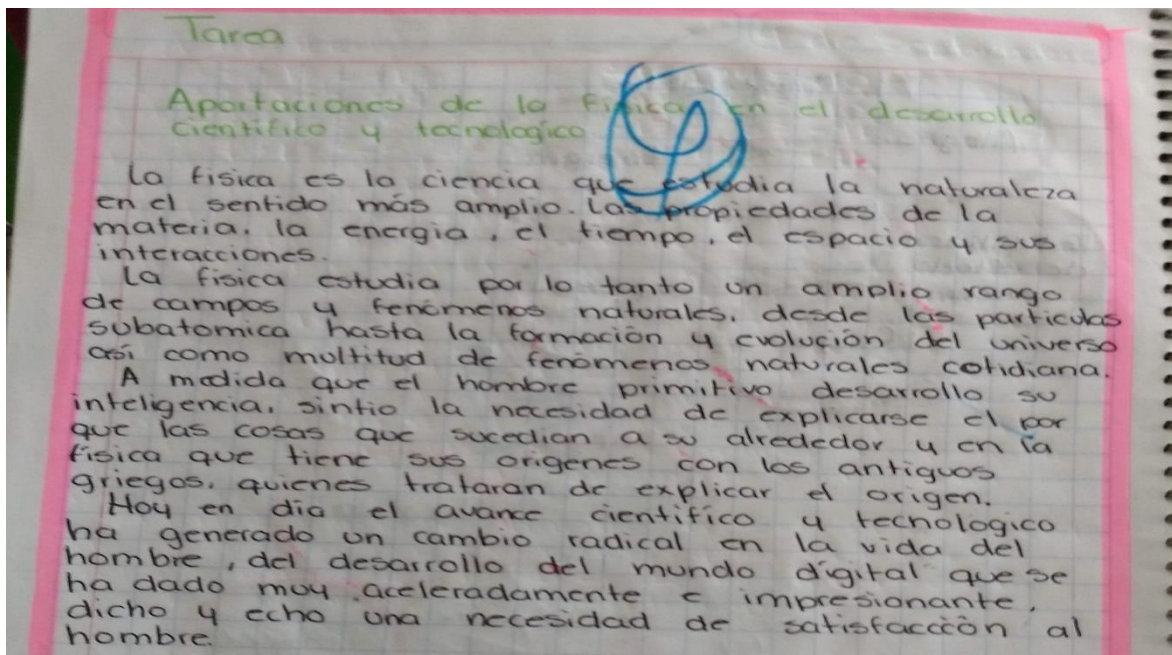 Tarea
Aportaciones de la fisica en el desarrollo
cientifico y tecnologico
La fisica es la ciencia que estudia la naturaleza
en el sentido más amplio. Las propiedades de la
materia, la energia, el tiempo, el espacio y sus
interacciones.
La fisica estudia por lo tanto un amplio rango
de campos y fenómenos naturales, desde las particulas
subatomica hasta la formación y evolución del universo
así como multitud de fenómenos naturales cotidiana.
A medida que el hombre primitivo desarrollo su
inteligencia, sintio la necesidad de explicarse el por
que las cosas que sucedian a su alrededor y en la
fisica que tiene sus origenes con los antiguos
griegos, quienes trataran de explicar el origen.
Hoy en dia el avance cientifico y tecnologico
ha generado un cambio radical en la vida del
hombre, del desarrollo del mundo digital que se
ha dado muy aceleradamente e impresionante,
dicho y echo una necesidad de satisfaccción al
hombre.